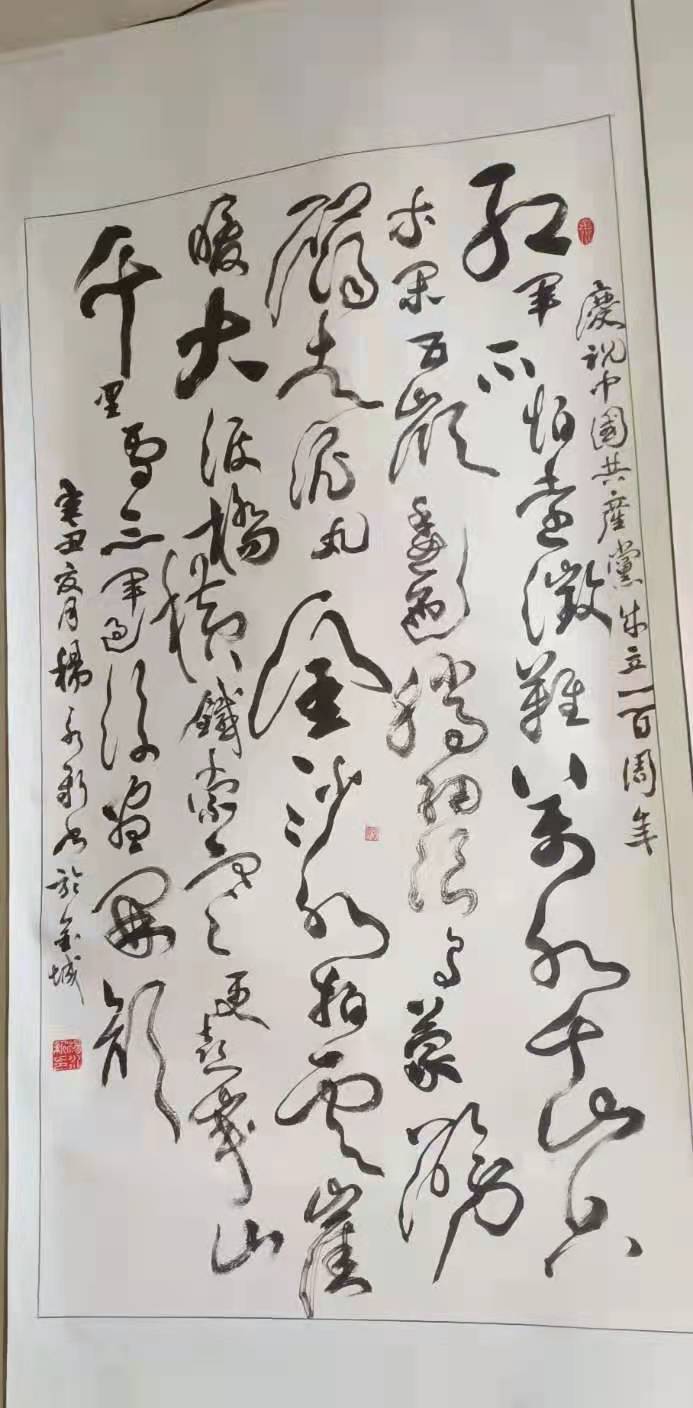 慶祝中國共產黨成立一百周年
紅軍不怕遠徵難萬水千山只
等閑五嶺逶迤騰細浪烏蒙磅
礴走泥丸金沙水拍雲崖
暖大渡橋橫鐵索寒更喜岷山
千里雪三軍過後盡開顏
辛丑夏月楊永新書於金城